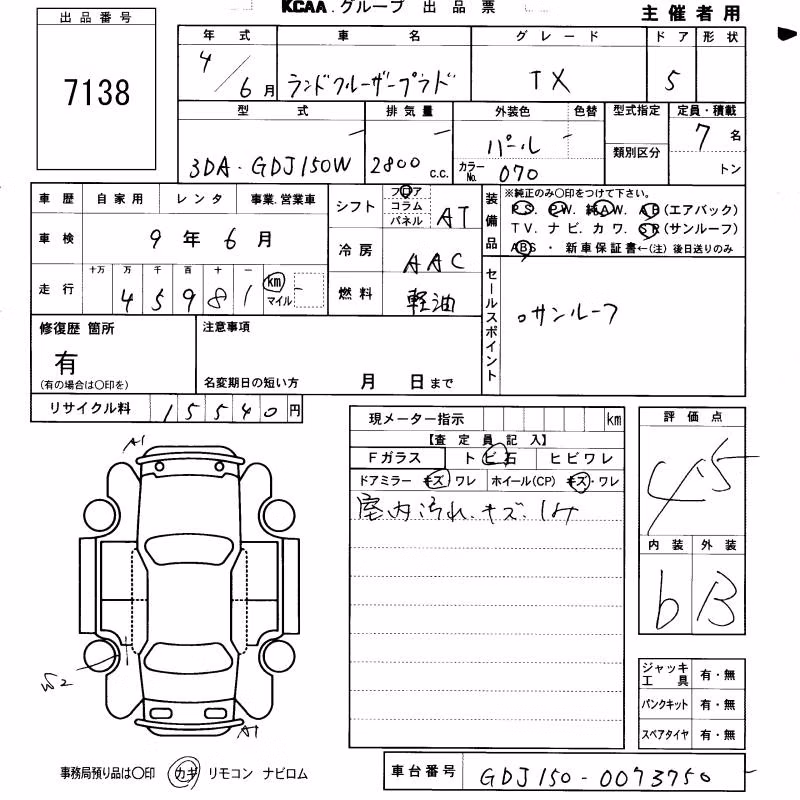 KCAA.グループ 出品票
主催者用
出品番号
7138
年式 車名 グレード ドア 形状
4/6月 ランドクルーザープラド TX 5
型式 排気量 外装色 色替 型式指定 定員・積載
3DA-GDJ150W 2800 c.c. パール カラーNo. 070 類別区分 7名
トン
車歴 自家用 レンタ 事業.営業車
車検 9年6月
走行 十万 万 千 百 十 一
45981 km マイル
シフト フロア コラム パネル AT
冷房 AAC
燃料 軽油
装備品
※純正のみ〇印をつけて下さい。
PS. PW. 純AW. AB(エアバック)
TV. ナビ. カワ. SR(サンルーフ)
ABS ・ 新車保証書←(注) 後日送りのみ
セールスポイント
○サンルーフ
修復歴 箇所
有
(有の場合は〇印を)
注意事項
名変期日の短い方 月 日まで
リサイクル料 15540円
現メーター指示 km
【査定員記入】
Fガラス トビ石 ヒビワレ
ドアミラー キズ・ワレ ホイール(CP) キズ・ワレ
室内汚れ.キズ.
評価点
4.5
内装 外装
b B
A1
W2
A1
ジャッキ工具 有・無
パンクキット 有・無
スペアタイヤ 有・無
事務局預り品は〇印 カギ リモコン ナビロム
車台番号 GDJ150-0073750